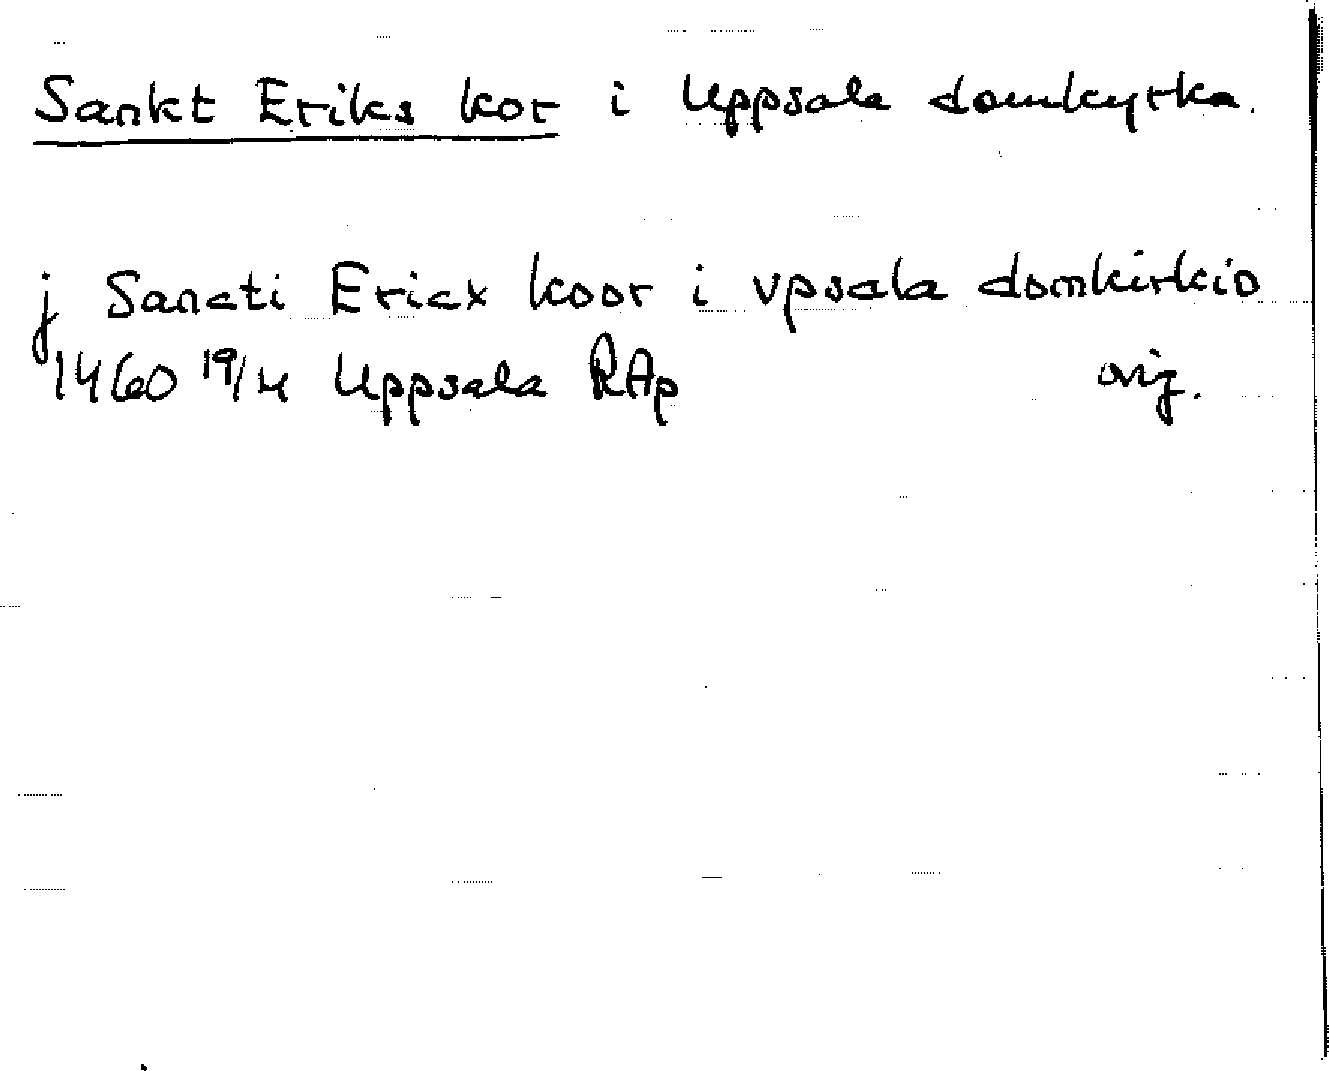 Sankt Eriks kor i Uppsala domkyrka.
j Sancti Ericx koor i vpsala domkirkio
1460 19/4 Uppsala RAp orig.